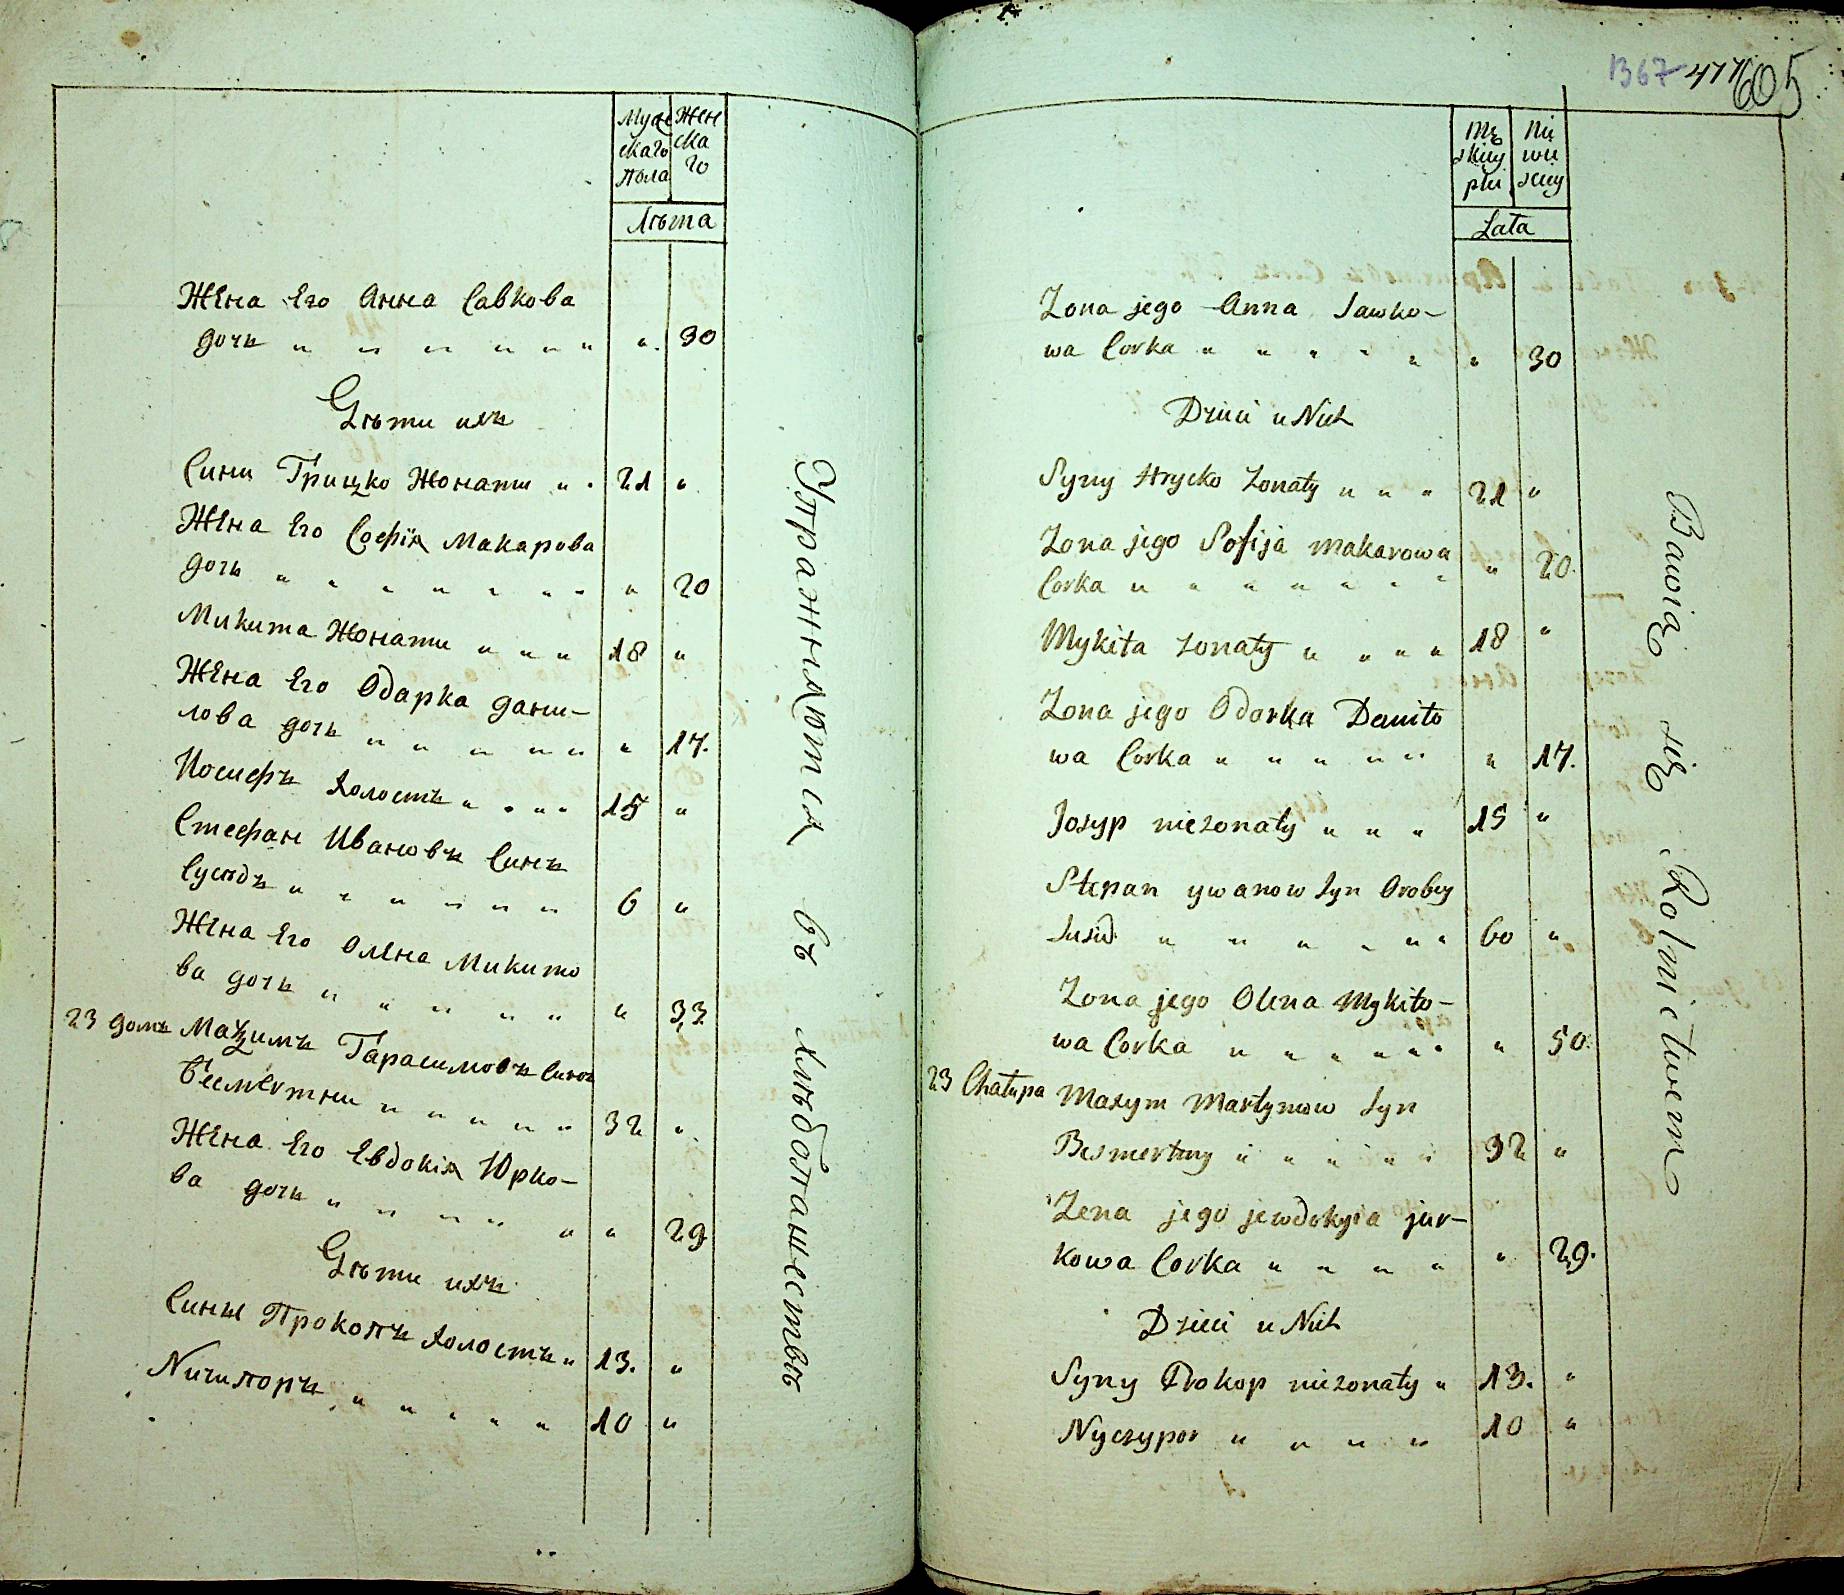 Муж Жен
скаго ска
пола го
Лѣта
Жена Его Анна Савкова
дочь " " " " " " " " 30
Дѣти ихъ
Сини Грицко Жонати " " 21 "
Жена Его Софія Макарова
дочь " " " " " " " " 20
Микита Жонати " " " 18 "
Жена Его Одарка дани-
лова дочь " " " " " " 17.
Иосифъ холостъ " " " " 15 "
Стефан Ивановъ Синъ
Сусѣдъ " " " " " " 6 "
Жена Его Олена Микито
ва дочь " " " " " " 33
23 домъ Мазимъ Гарасимовъ Синъ
Бесмертни " " " " " 32 "
Жена Его Евдокія Юрко-
ва дочь " " " " " " 29
Дѣти ихъ
Сины Прокопъ холостъ " 13. "
Ничипоръ " " " " " 10 "
Упражняются въ хлѣбопашествѣ
1367 477 605
Mę Nie
skiey wie
płci skiey
Lata
Zona jego Anna Sawko-
wa Corka " " " " " " 30
Dzieci u Nich
Syny Hrycko Zonaty " " " 21 "
Zona jego Sofija Makarowa
Corka " " " " " " " " 20.
Mykita zonaty " " " " 18 "
Zona jego Odarka Daniło
wa Corka " " " " " " 17.
Josyp niezonaty " " " 15 "
Stepan ywanow Syn Orobey
Susid " " " " " " 60 "
Zona jego Olena Mykito-
wa Corka " " " " " " " 50.
23 Chałupa Maxym Martynow Syn
Besmertny " " " " " 32 "
Zena jego jewdokyia jur-
kowa Corka " " " " " 29.
Dzieci u Nich
Syny Prokop niezonaty " 13. "
Nyczypor " " " " 10 "
Bawią się Rolnictwem